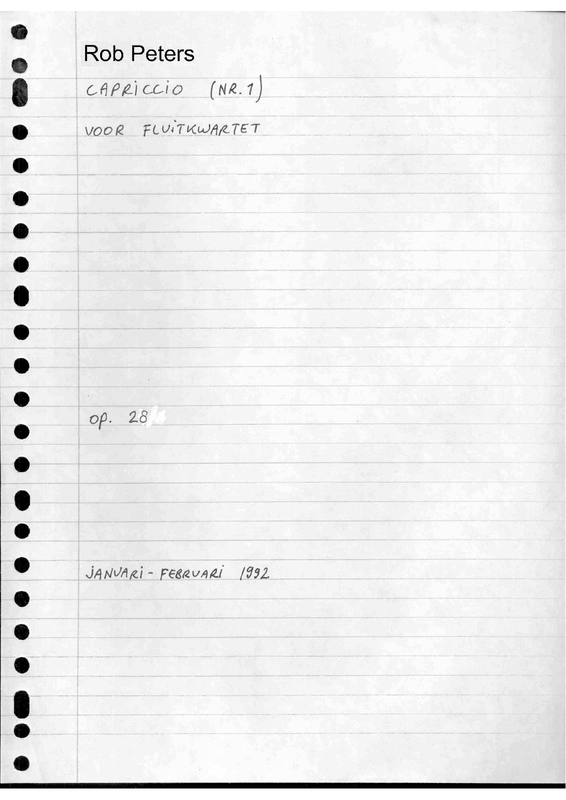 Rob Peters
CAPRICCIO (NR.1)
VOOR FLUITKWARTET
op. 28
JANUARI - FEBRUARI 1992